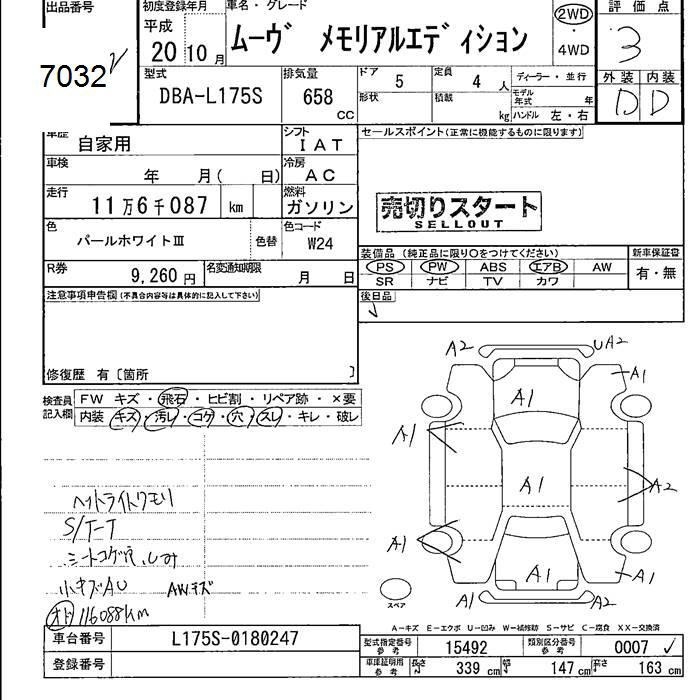 出品番号 初度登録年月 車名・グレード 2WD 評価点
平成 20 10月 ムーヴ メモリアルエディション ・ 3
7032 4WD
型式 排気量 ドア 5 定員 4人 ディーラー・並行 外装 内装
DBA-L175S 658 CC 形状 積載 kg モデル年式 年 D D
ハンドル 左・右
車歴 自家用 シフト IAT セールスポイント(正常に機能するものに限ります)
車検 年 月( 日) 冷房 AC
走行 11万6千087 km 燃料 ガソリン 売切りスタート
SELLOUT
色 パールホワイトⅢ 色替 色コード W24
装備品 (純正品に限り○をつけてください) 新車保証書
R券 9,260円 名変通知期限 月 日 PS PW ABS エアB AW 有・無
SR ナビ TV カワ
注意事項申告欄(不具合内容等は具体的に記入して下さい) 後日品
修復歴 有〔箇所 〕
検査員 FW キズ・飛石・ヒビ割・リペア跡・×要
記入欄 内装 キズ・汚レ・コゲ・穴・スレ・キレ・破レ
A2 UA2
A1 A1
A1
A1 A2
A1
A1 A1
スペア A1 A2
ヘットライトクモリ
S/T-T
シートコゲ穴、しみ
小キズAU AWキズ
オド 116088km
A-キズ E-エクボ U-凹み W-補修跡 S-サビ C-腐食 XX-交換済
車台番号 L175S-0180247 型式指定番号 参考 15492 類別区分番号 参考 0007
登録番号 車庫証明用 参考 長さ 339cm 幅 147cm 高さ 163cm